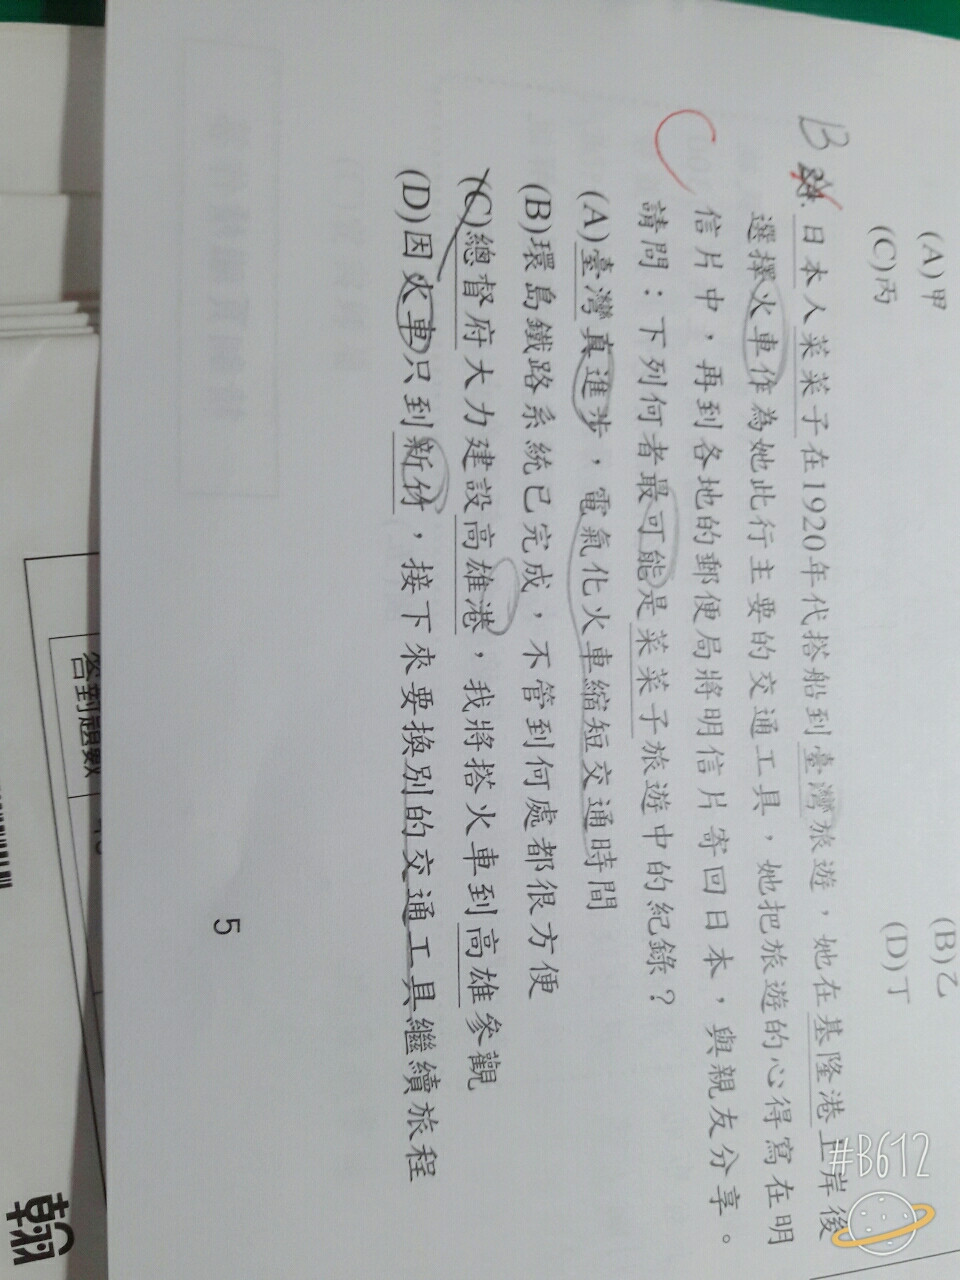 (A)甲
(B)乙
(C)丙
(D)丁
B
日本人菜菜子在1920年代搭船到臺灣旅遊，她在基隆港上岸後
選擇火車作為她此行主要的交通工具，她把旅遊的心得寫在明
信片中，再到各地的郵便局將明信片寄回日本，與親友分享。
請問：下列何者最可能是菜菜子旅遊中的紀錄？
(A)臺灣真進步，電氣化火車縮短交通時間
(B)環島鐵路系統已完成，不管到何處都很方便
(C)總督府大力建設高雄港，我將搭火車到高雄參觀
(D)因火車只到新竹，接下來要換別的交通工具繼續旅程
5
答對題數
翰
#B612